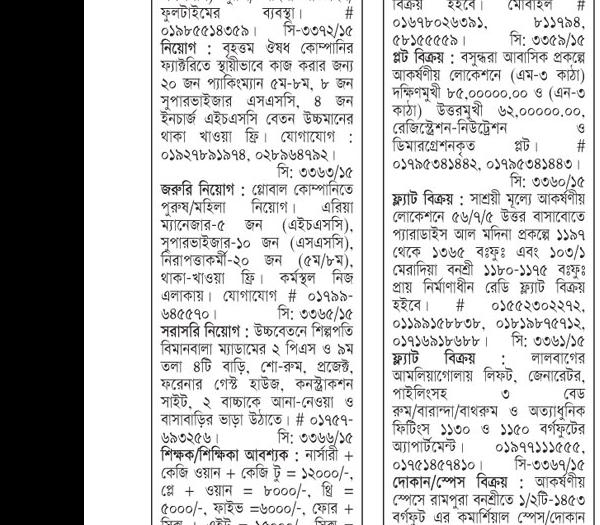 ফুলটাইমের ব্যবস্থা। #
০১৯৮৫৫১৪৩৫৯। সি-৩৩৭২/১৫
নিয়োগ : বৃহত্তম ঔষধ কোম্পানির
ফ্যাক্টরিতে স্থায়ীভাবে কাজ করার জন্য
২০ জন প্যাকিংম্যান ৫ম-৮ম, ৮ জন
সুপারভাইজার এসএসসি, ৪ জন
ইনচার্জ এইচএসসি বেতন উচ্চমানের
থাকা খাওয়া ফ্রি। যোগাযোগ :
০১৯২৭৮৯১৯৭৪, ০২৮৯৬৪৭৯২।
সি: ৩৩৬৩/১৫
জরুরি নিয়োগ : গ্লোবাল কোম্পানিতে
পুরুষ/মহিলা নিয়োগ। এরিয়া
ম্যানেজার-৫ জন (এইচএসসি),
সুপারভাইজার-১০ জন (এসএসসি),
নিরাপত্তাকর্মী-২০ জন (৫ম/৮ম),
থাকা-খাওয়া ফ্রি। কর্মস্থল নিজ
এলাকায়। যোগাযোগ # ০১৭৯৯-
৬৪৫৫৭০। সি: ৩৩৬৫/১৫
সরাসরি নিয়োগ : উচ্চবেতনে শিল্পপতি
বিমানবালা ম্যাডামের ২ পিএস ও ৯ম
তলা ৪টি বাড়ি, শো-রুম, প্রজেক্ট,
ফরেনার গেস্ট হাউজ, কনস্ট্রাকশন
সাইট, ২ বাচ্চাকে আনা-নেওয়া ও
বাসাবাড়ির ভাড়া উঠাতে। # ০১৭৫৭-
৬৯৩২৫৬। সি: ৩৩৬৬/১৫
শিক্ষক/শিক্ষিকা আবশ্যক : নার্সারী +
কেজি ওয়ান + কেজি টু = ১২০০০/-,
প্লে + ওয়ান = ৮০০০/-, থ্রি =
৫০০০/-, ফাইভ =৬০০০/-, ফোর +
বিক্রয় হইবে। মোবাইল #
০১৬৭৮০২৬৩৯১, ৮১১৭৯৪,
৫৮১৫৫৫৫৯। সি: ৩৩৫৯/১৫
প্লট বিক্রয় : বসুন্ধরা আবাসিক প্রকল্পে
আকর্ষণীয় লোকেশনে (এম-৩ কাঠা)
দক্ষিণমুখী ৮৫,০০০০০.০০ ও (এন-৩
কাঠা) উত্তরমুখী ৬২,০০০০০.০০,
রেজিস্ট্রেশন-নিউট্রেশন ও
ডিমারগ্রেশনকৃত প্লট। #
০১৭৯৫৩৪১৪৪২, ০১৭৯৫৩৪১৪৪৩।
সি: ৩৩৬০/১৫
ফ্ল্যাট বিক্রয় : সাশ্রয়ী মূল্যে আকর্ষণীয়
লোকেশনে ৫৬/৭/৫ উত্তর বাসাবোতে
প্যারাডাইস আল মদিনা প্রকল্পে ১১৯৭
থেকে ১৩৬৫ বঃফুঃ এবং ১০৩/১
মেরাদিয়া বনশ্রী ১১৮০-১১৭৫ বঃফুঃ
প্রায় নির্মাণাধীন রেডি ফ্ল্যাট বিক্রয়
হইবে। # ০১৫৫২৩০২২৭২,
০১১৯৯১৫৮৮৩৮, ০১৮১৯৮৭৫৭১২,
০১৭১৬৯১৮৬৮৮। সি: ৩৩৬১/১৫
ফ্ল্যাট বিক্রয় : লালবাগের
আমলিয়াগোলায় লিফট, জেনারেটর,
পাইলিংসহ ৩ বেড
রুম/বারান্দা/বাথরুম ও অত্যাধুনিক
ফিটিংস ১১৩০ ও ১১৫০ বর্গফুটের
অ্যাপার্টমেন্ট। ০১৯৭৭১১১৫৫৫,
০১৭৫১৪৫৭৪১০। সি-৩৩৬৭/১৫
দোকান/স্পেস বিক্রয় : আকর্ষণীয়
স্পেসে রামপুরা বনশ্রীতে ১/২টি-১৪৫৩
বর্গফুট এর কমার্শিয়াল স্পেস/দোকান